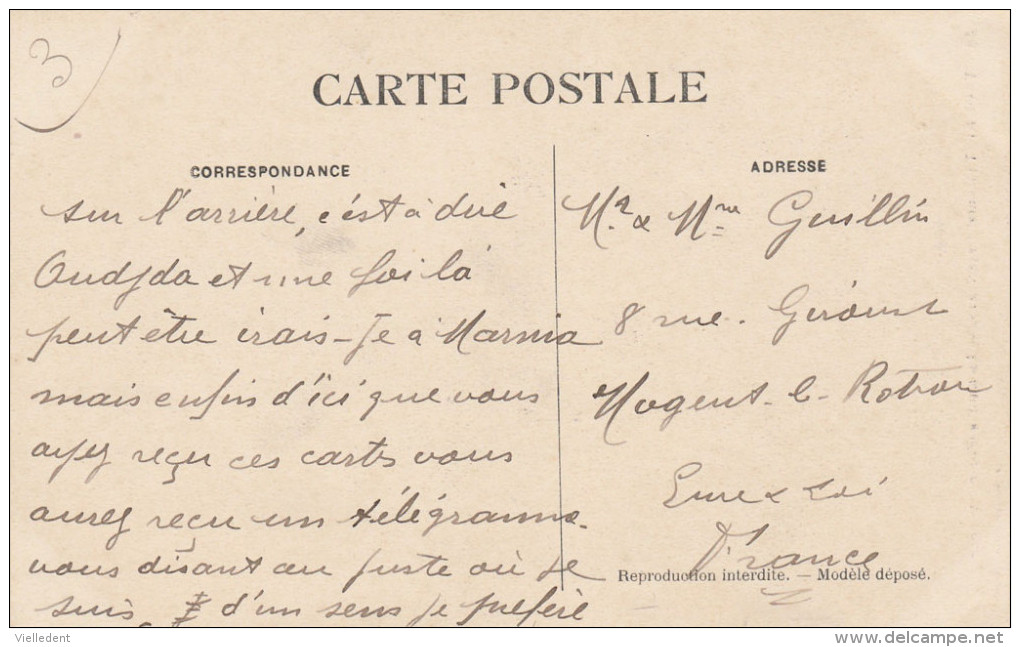 3
CARTE POSTALE
CORRESPONDANCE
sur l'arrière, c'est à dire
Oudjda et une foi là
peut être irais-je à Marnia
mais enfin d'ici que vous
ayez reçu ces carts vous
aurez reçu un télégramme
vous disant au juste où je
suis, d'un sens je préfère
ADRESSE
Mr & Mme Guillin
8 rue. Girouст
Nogent-le-Rotrou
Eure & Loi
France
Reproduction interdite. — Modèle déposé.
Vielledent
www.delcampe.net